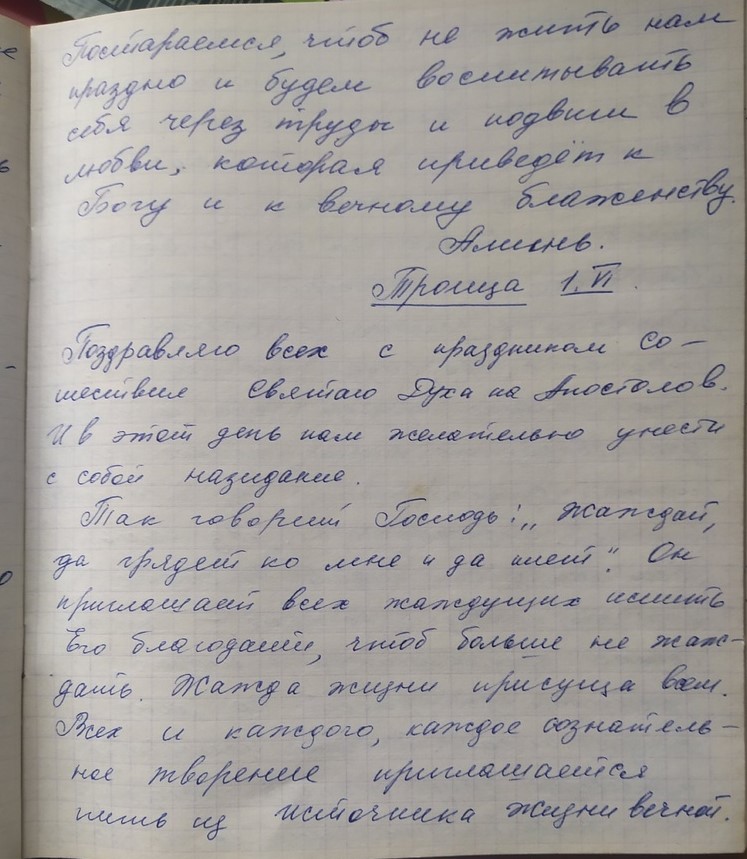 Постараемся, чтоб не жить нам
праздно и будем воспитывать
себя через труды и подвиги в
любви, которая приведёт к
Богу и к вечному блаженству.
Аминь.
Троица 1.VI.
Поздравляю всех с праздником Со-
шествия Святаго Духа на Апостолов.
И в этот день нам желательно унести
с собой назидание.
Так говорит Господь: „Жаждай,
да грядет ко мне и да пиет". Он
приглашает всех жаждущих испить
Его благодати, чтоб больше не жаж-
дать. Жажда жизни присуща всем.
Всех и каждого, каждое сознатель-
ное творение приглашается
пить из источника жизни вечной.